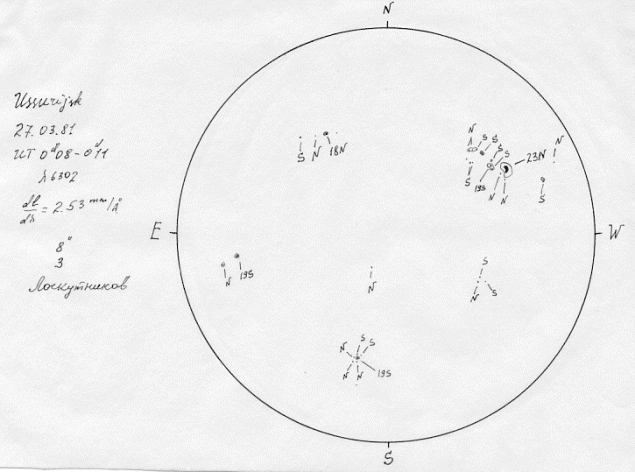 N
Ussurijsk
27.03.81
UT 0ᵈ08-0ᵈ11
λ6302
dl/dλ = 2.53 mm/Å
8"
3
Лоскутников
S N 18N
N S S
S S
S 19S N N
23N
N
S
E
W
N 19S
N
S
N S
N S S
N N 19S
S